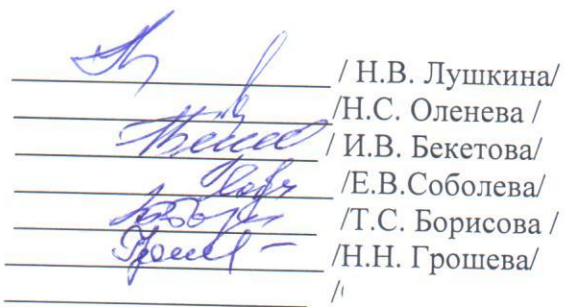 / Н.В. Лушкина/
/Н.С. Оленева /
/ И.В. Бекетова/
/Е.В.Соболева/
/Т.С. Борисова /
/Н.Н. Грошева/
/